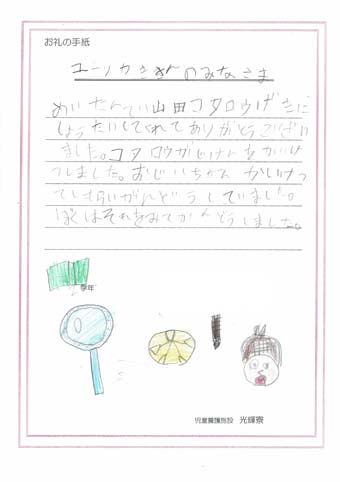 お礼の手紙
ユーリカきネんのみなさま
めいたんてい山田コタロウげきに
しょうたいしてくれてありがとうござい
ました。コタロウがじけんをかいけ
つしました。おじいちゃん かいけつ
していました。
ぼくはそれをみてかんどうしました。
学年
児童養護施設 光輝寮